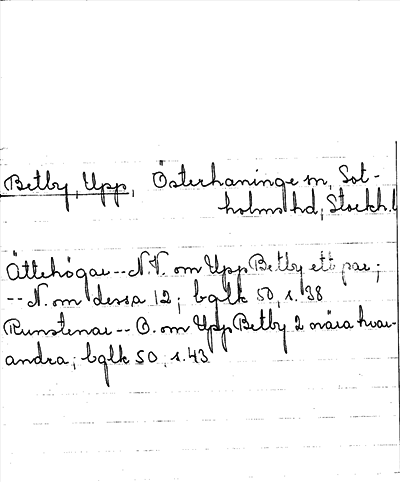 Betby, Upp, Österhaninge sn, Sot-
holms hd, Stockh. l
Ättehögar -- N.V. om Upp Betby ett par;
-- N. om dessa 12; bglk 50, s. 38
Runstenar -- O. om Upp Betby 2 nära hvar-
andra; bglk 50, s. 43